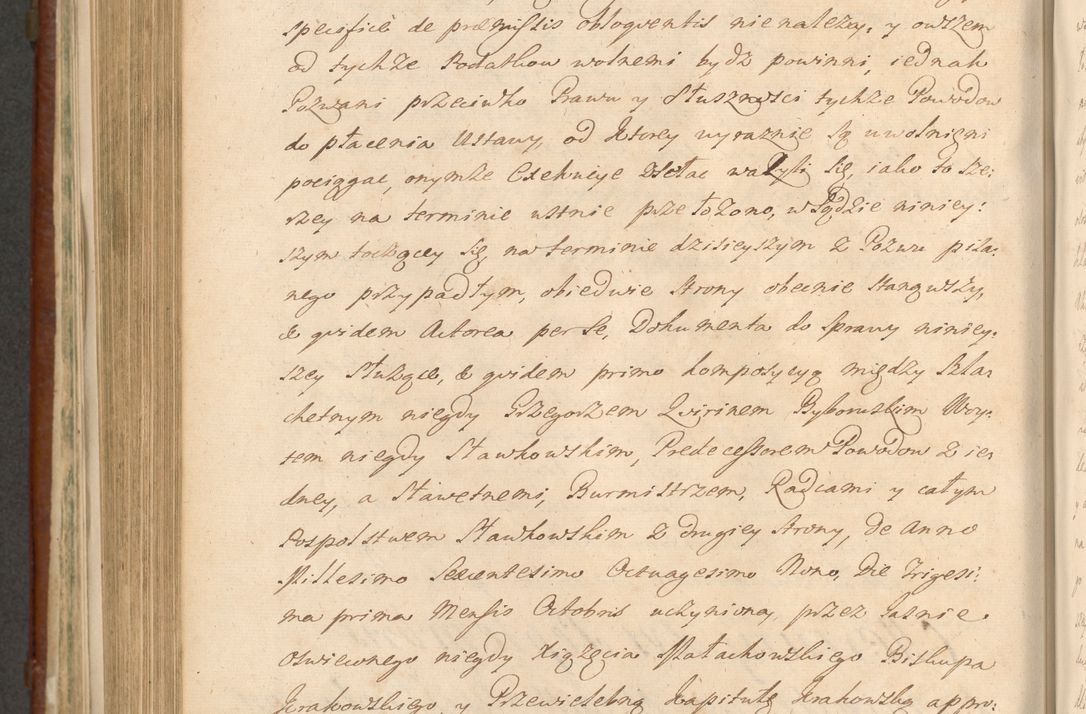 specifice de præmissis obloquentis nienależy, y owszem
od tychże Podatkow wolnemi bydz powinni, iednak
Pozwani przeciwko Prawu y Słuszności tychże Powodow
do płacenia Ustawy, od ktorey wyraznie są uwolnieni
pociągać, onymże Exekucye zsełac ważyli się, iako to sze:
rzey na terminie ustnie przełożono, w Sądzie niniey:
szym toczącey się, na terminie dzisieyszym z Pozwu pisa:
nego przypadłym, obiedwie Strony obecnie stanąwszy,
& quidem Actorea per se, Dokumenta do sprawy niniey:
szey służące, & quidem primo kompozycyą między szla:
chetnym niegdy Grzegorzem Quirinem Byboruskim Woy:
tem niegdy Sławkowskim, Predecessorem Powodow z ie:
dney, a Sławetnemi, Burmistrzem, Radcami y całym
Pospolstwem Sławkowskim z drugiey Strony, de Anno
Millesimo Sexcentesimo Octuagesimo Nono, Die Trigesi:
ma prima Mensis Octobris uczynioną, przez Jasnie
Oswieconego niegdy Xiążęcia Małachowskiego Biskupa
Krakowskiego y Przewielebną Kapitułę Krakowską appro: